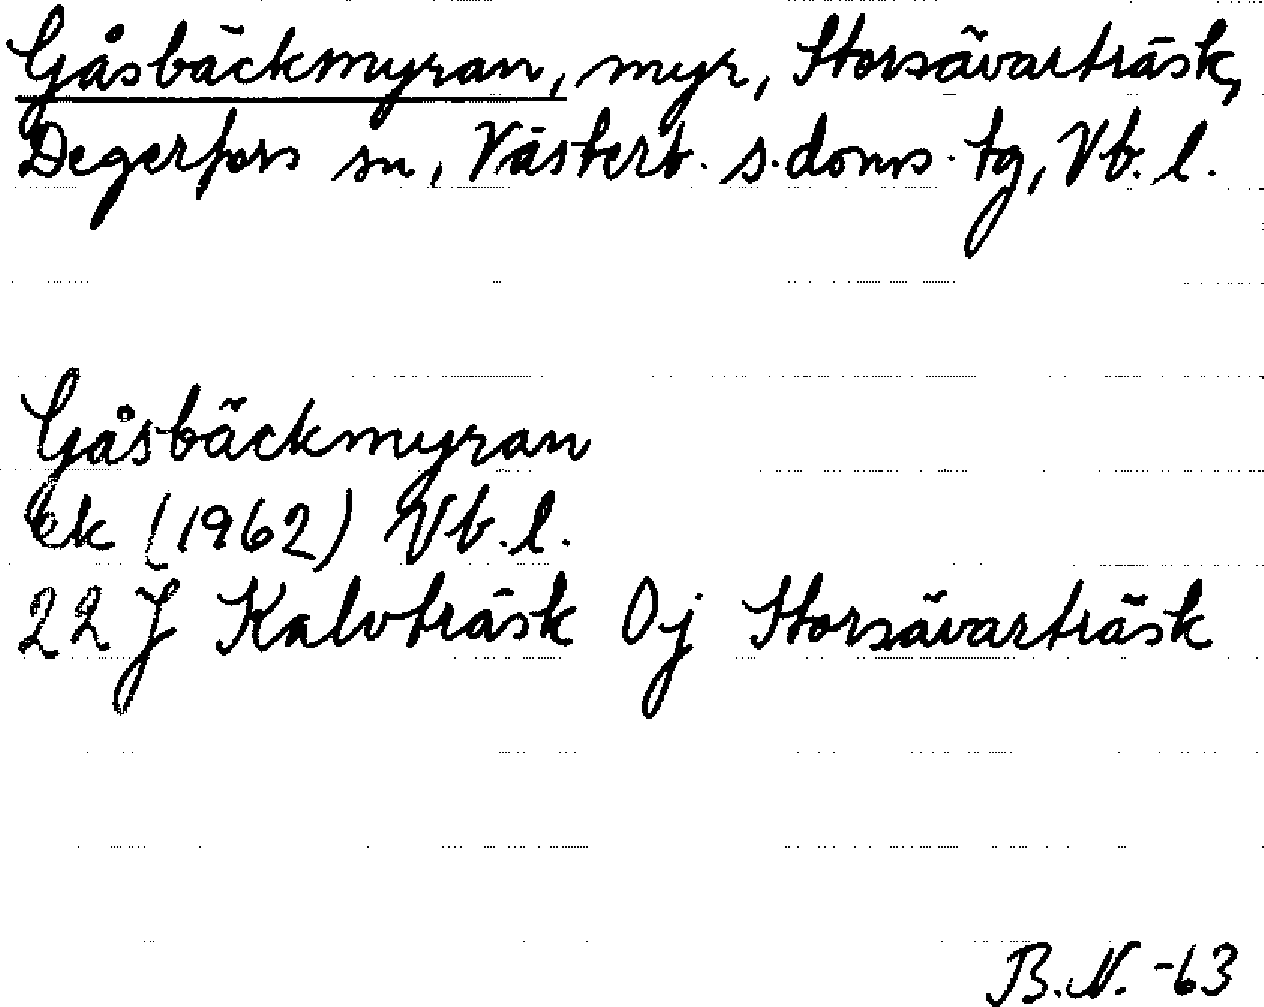 Gåsbäckmyran, myr, Storsävarträsk,
Degerfors sn, Västerb. s. doms. tg, Vb. l.
Gåsbäckmyran
ek (1962) Vb. l.
22 J Kalvträsk 0j Storsävarträsk
B.N. -63